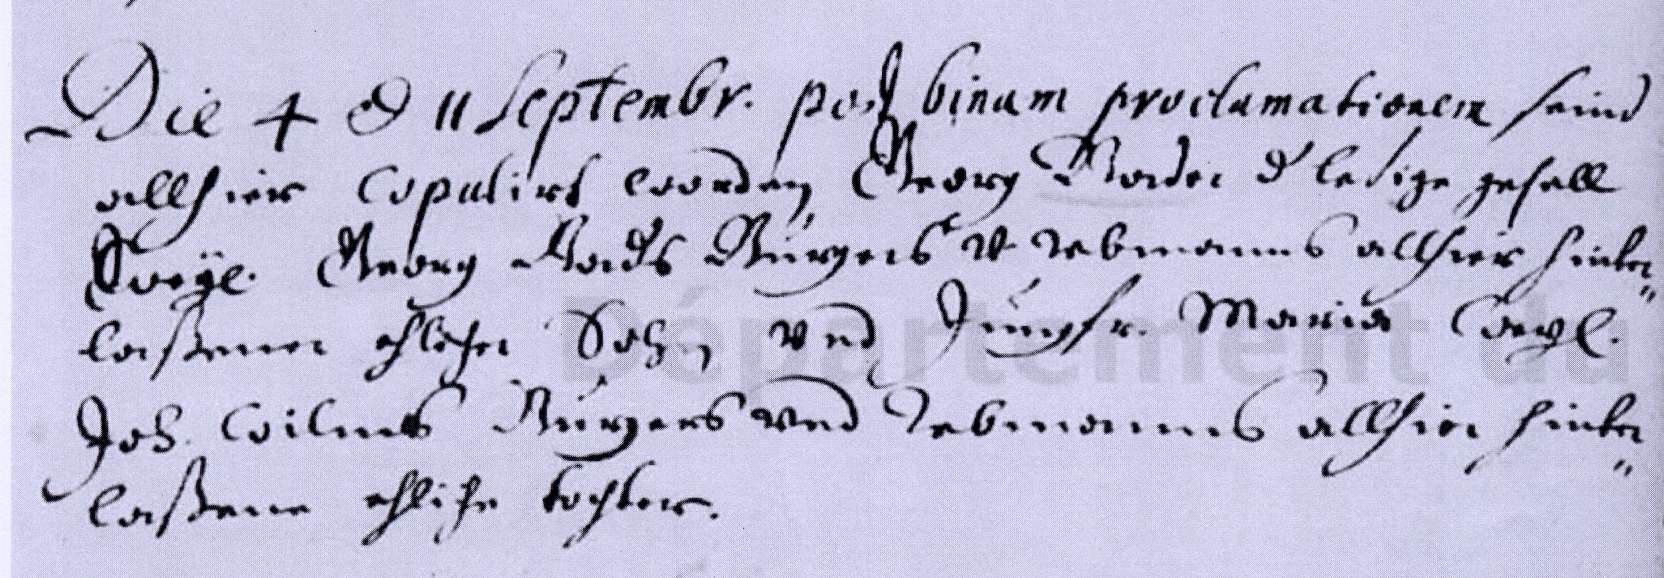 Die 4 d 11 Septembr. post binam proclamationem seind
allhier copulirt worden Georg Bader d ledige gesell
Georg Baders Burgers v Rebmanns allhier hinter
laßener ehlicher Sohn vnd Jungfr. Maria
Joh. Burgers vnd Rebmanns allhier hinter
laßene ehliche tochter.
Département du